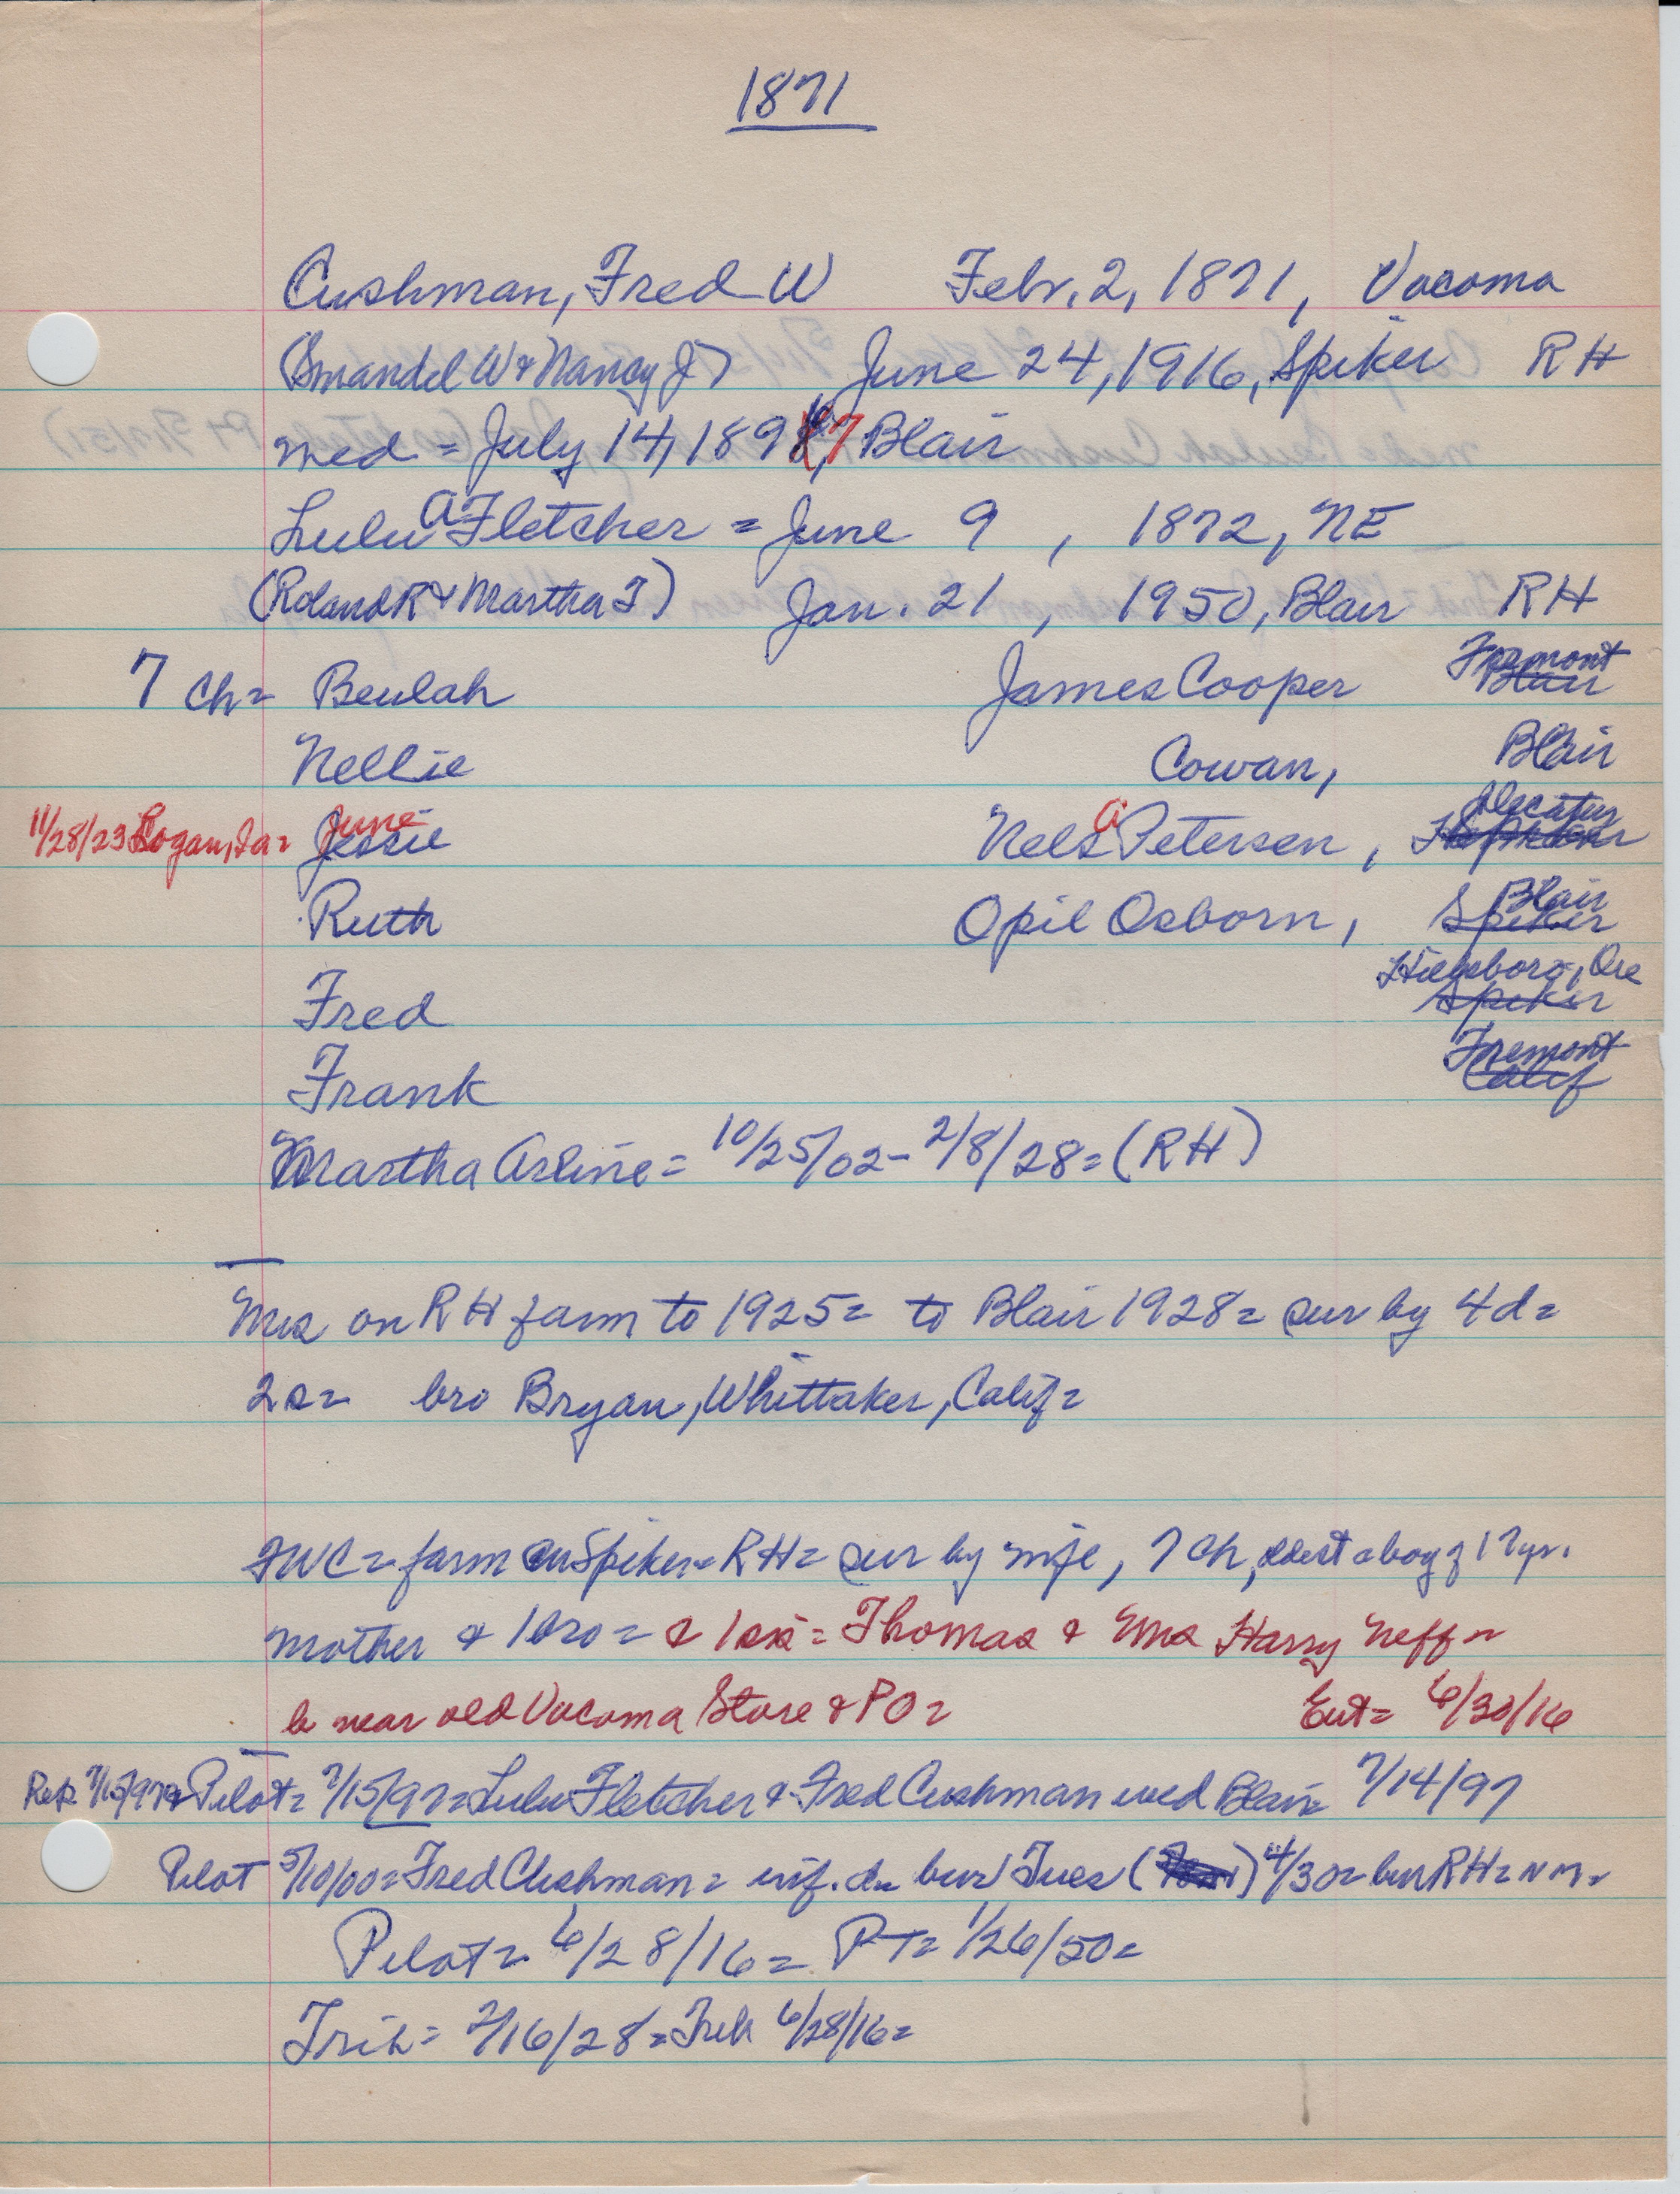 1871
Cushman, Fred W Febr. 2, 1871, Vacoma
(Smandel W & Nancy J) June 24, 1916, Spiker RH
med = July 14, 1897, Blair
Lulu A Fletcher = June 9, 1872, NE
(Roland R & Martha J) Jan. 21, 1950, Blair RH
7 ch= Beulah James Cooper Fremont Blair
Nellie Cowan, Blair
11/28/23 Logan, Ia= Jessie June Nels A Petersen, Decatur
Ruth Opil Osborn, Blair Spiker
Fred Hillsboro, Ore Spiker
Frank Fremont Calif
Martha Arline = 10/25/02 - 2/8/28 = (RH)
Mrs on RH farm to 1925 = to Blair 1928 = sur by 4 d =
2 s = bro Bryan, Whittaker, Calif =
FWC = farm Spiker - RH = sur by wife, 7 ch, oldest a boy of 17 yr.
mother & 1 bro = & 1 sis = Thomas & Mrs Harry Neff =
b near old Vacoma Store & PO = Ent= 6/30/16
Rep 7/15/97 & Pilot = 7/15/97 = Lulu Fletcher & Fred Cushman wed Blair 7/14/97
Pilot 5/10/00 = Fred Cushman = inf. d. bur Tues ( ) 4/30 = bur RH = N M =
Pilot = 6/28/16 = PT = 1/26/50 =
Trib = 2/16/28 = Trib 6/28/16 =